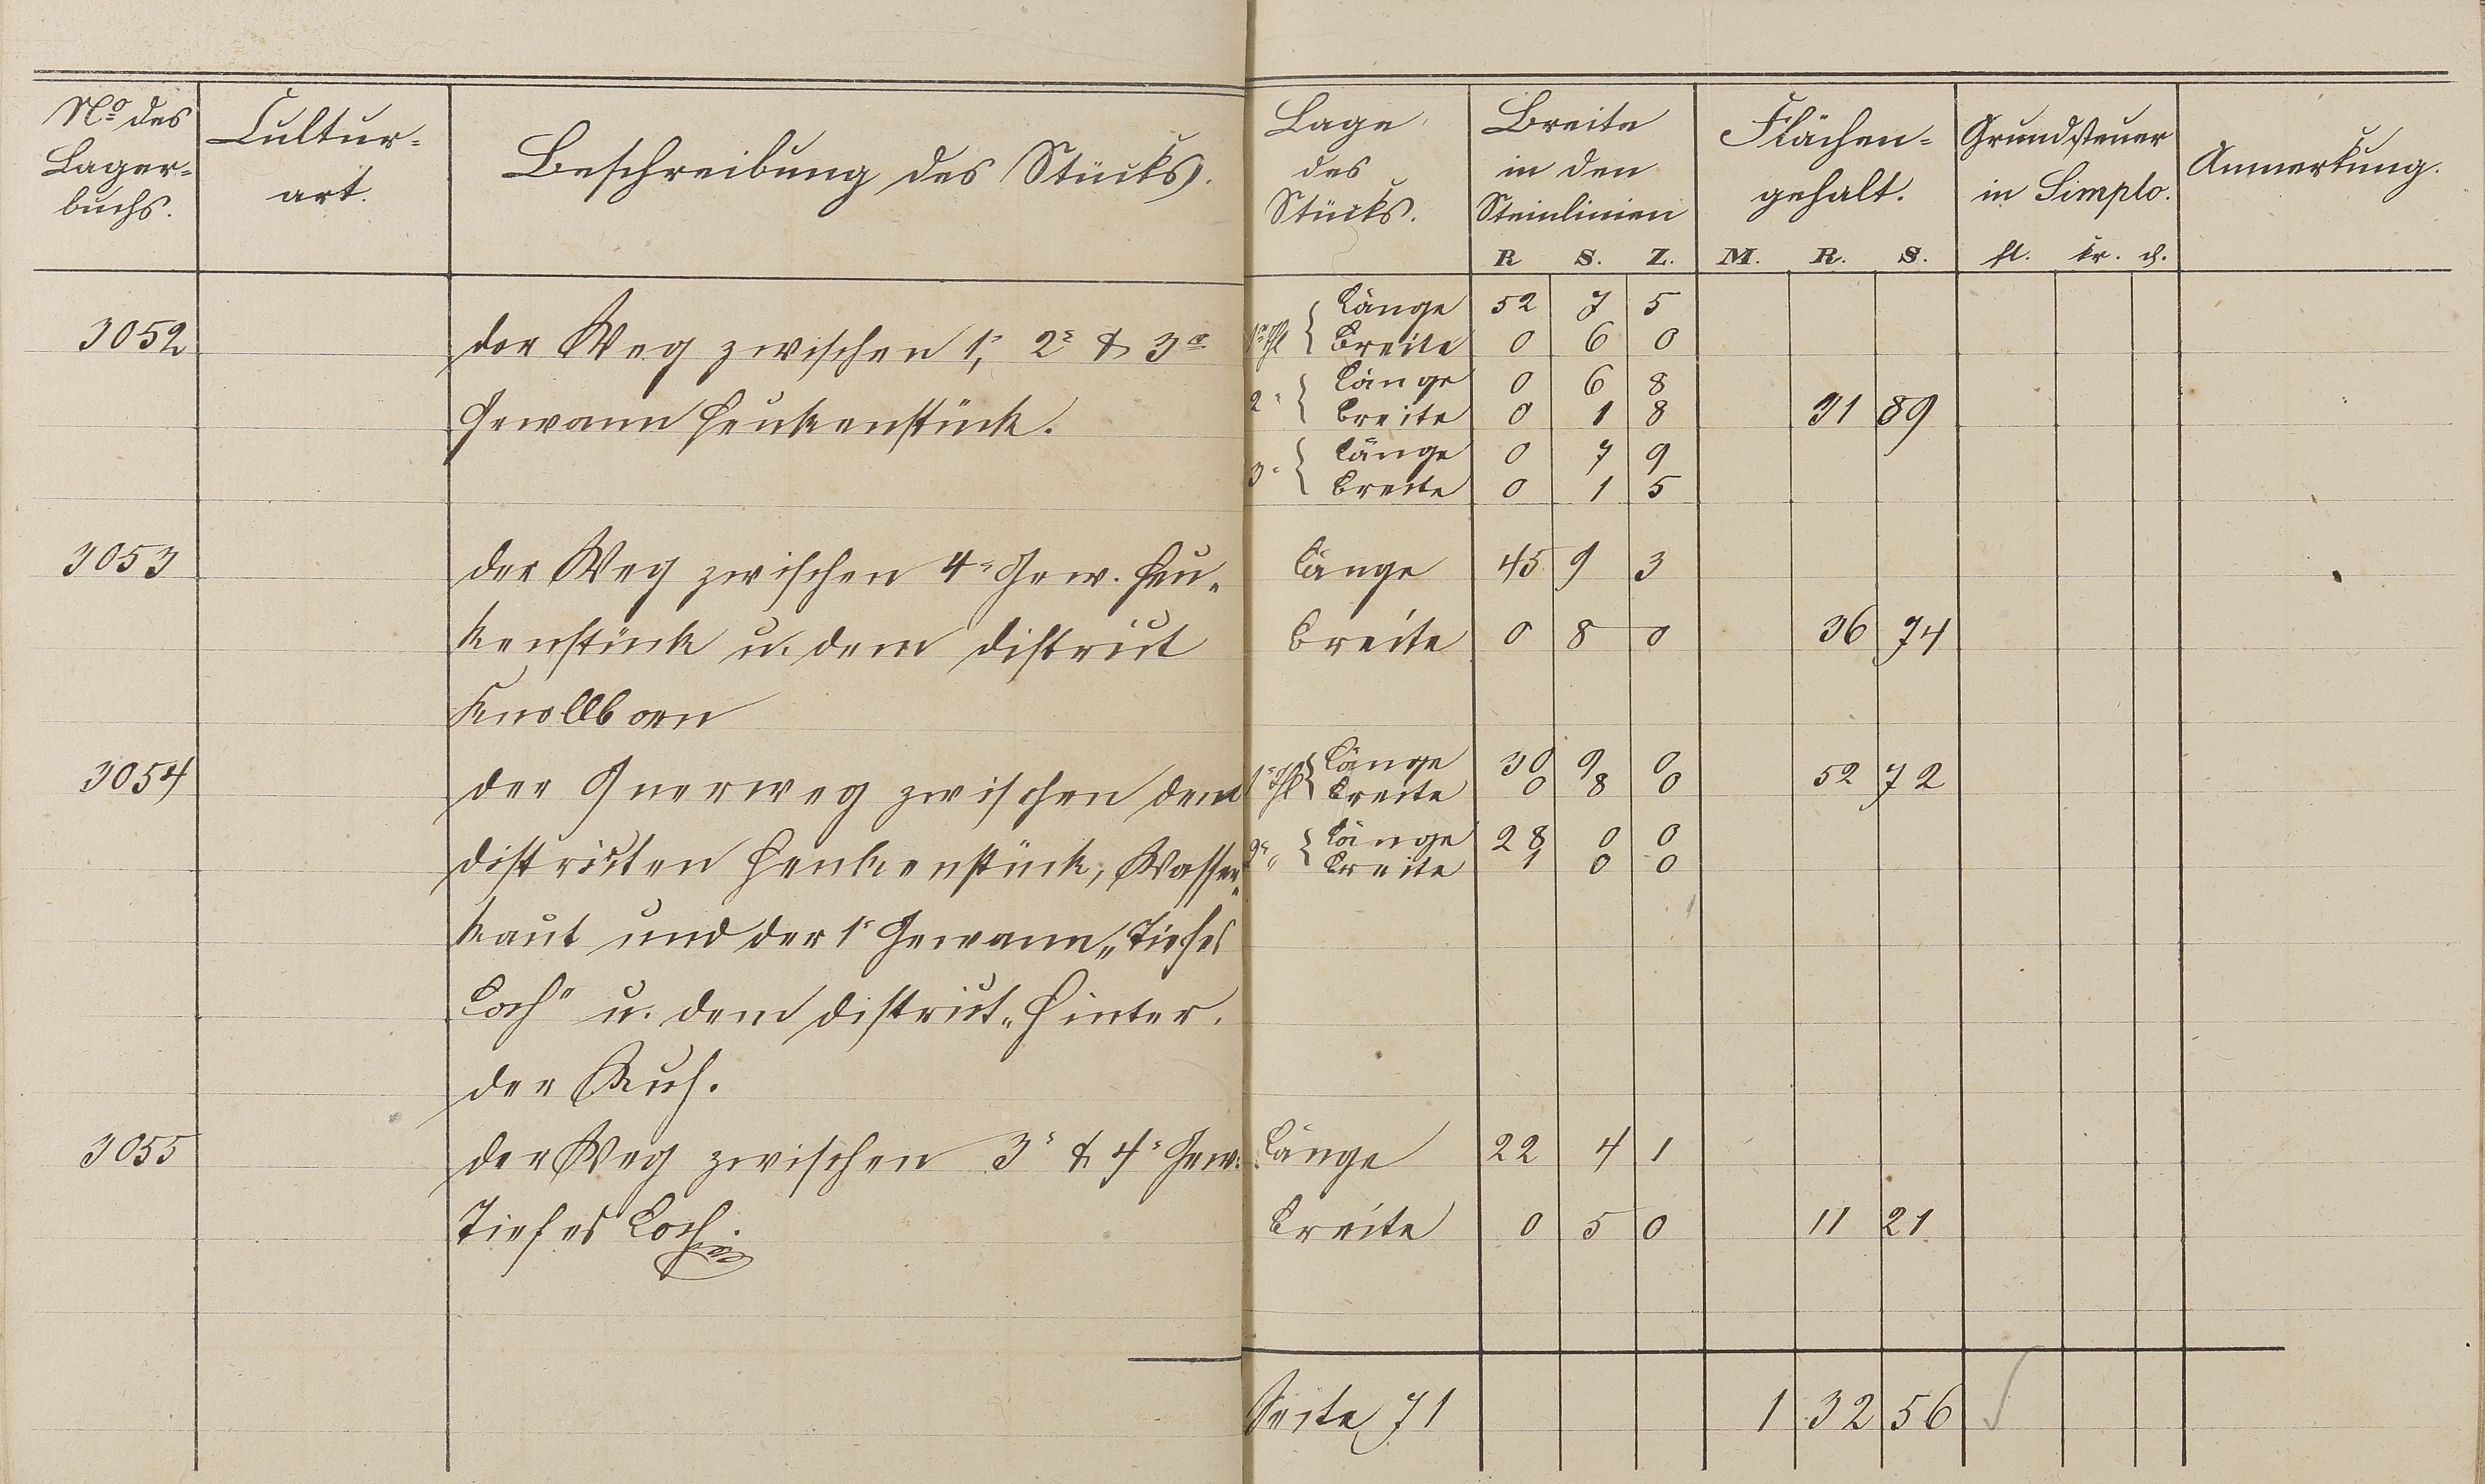 No des Lager- buchs.
Cultur- art.
Beschreibung des Stücks.
Lage des Stücks.
Breite in den Steinlinien
Flächen- gehalt.
Grundsteuer in Simplo.
Anmerkung.
R S. Z. M. R. S. fl. kr. d.
3052 der Weg zwischen 1r, 2r & 3r 1r Thl Länge 52 7 5
Breite 0 6 0
Gewann Heukenstück. 2r Länge 0 6 8
Breite 0 1 8 31 89
3r Länge 0 7 9
Breite 0 1 5
3053 der Weg zwischen 4r Gew. Heu- Länge 45 9 3
kenstück u. dem District Breite 0 8 0 36 74
Knollborn
3054 der Querweg zwischen dem 1r Thl Länge 30 9 0 52 72
Breite 0 8 0
Districten Heukenstück, Wasser- 2r " Länge 28 0 0
Breite 1 0 0
kaut und der 1r Gewann „Tiefes
Loch" u. dem District „Hinter
der Kuh.
3055 der Weg zwischen 3r & 4r Gew. Länge 22 4 1
Tiefes Loch. Breite 0 5 0 11 21
Seite 71 1 32 56